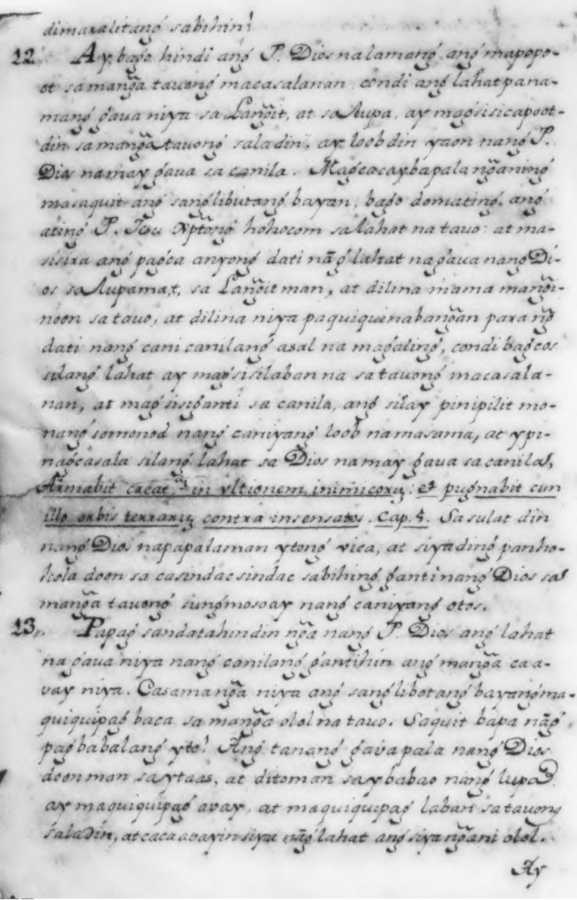 dimaralitang sabihin!
12 Ay bago hindi ang P. Dios na lamang, ang mapopo-
ot sa mang̃a tauong macasalanan, condi ang lahat pana-
mang gaua niya sa Lang̃it, at sa Lupa, ay magsisicapoot-
din sa mang̃a tauong saladin; ay loob din yaon nang P.
Dios na may gaua sa canila. Magcacaybapala ng̃aning
masaquit ang sanglibutang bayan, bago domating, ang
ating P. Iesu Xp̃tong hohocom sa lahat na tauo: at ma-
sisira ang pagca anyong dati nãg lahat na gaua nang Di-
os sa Lupamat, sa Lang̃it man, at dilina mama mang̃i-
noon sa tauo, at dilina niya paquiquinabang̃an para nãg
dati nang cani canilang asal na magaling, condi bagcos
silang lahat ay magsisilaban na sa tauong macasala-
nan, at magsisiganti sa canila, ang silay pinipilit mo-
nang somonod nang caniyang loob na masama, at ypi-
nagcasala silang lahat sa Dios na may gaua sa canila!,
Armabit creat.ᵃᵐ in vltionem inimicorũ: et pugnabit cum
illo orbis terrarũ contra insensatos. Cap. 5. Sa sulat din
nang Dios napapalaman ytong vica, at siya ding panho-
hola doon sa casindac sindac sabihing ganti nang Dios sa!
mang̃a tauong sungmosoay nang caniyang otos.
13. Papagsandatahin din ng̃a nang P. Dios ang lahat
na gaua niya nang canilang gantihin ang mang̃a caa-
uay niya. Casamang̃a niya ang sanglibotang bayang ma-
quiquipag baca sa mang̃a olol na tauo. Saquit bapa nãg,
pagbabalang yto! Ang tanang gaua pala nang Dios
doon man sa ytaas, at dito man sa ybabao nang lupa
ay maquiquipag auay, at maquiquipag laban sa tauong
saladin, at cacaauayin siya nãg lahat ang siya ng̃ani olol.
Ay